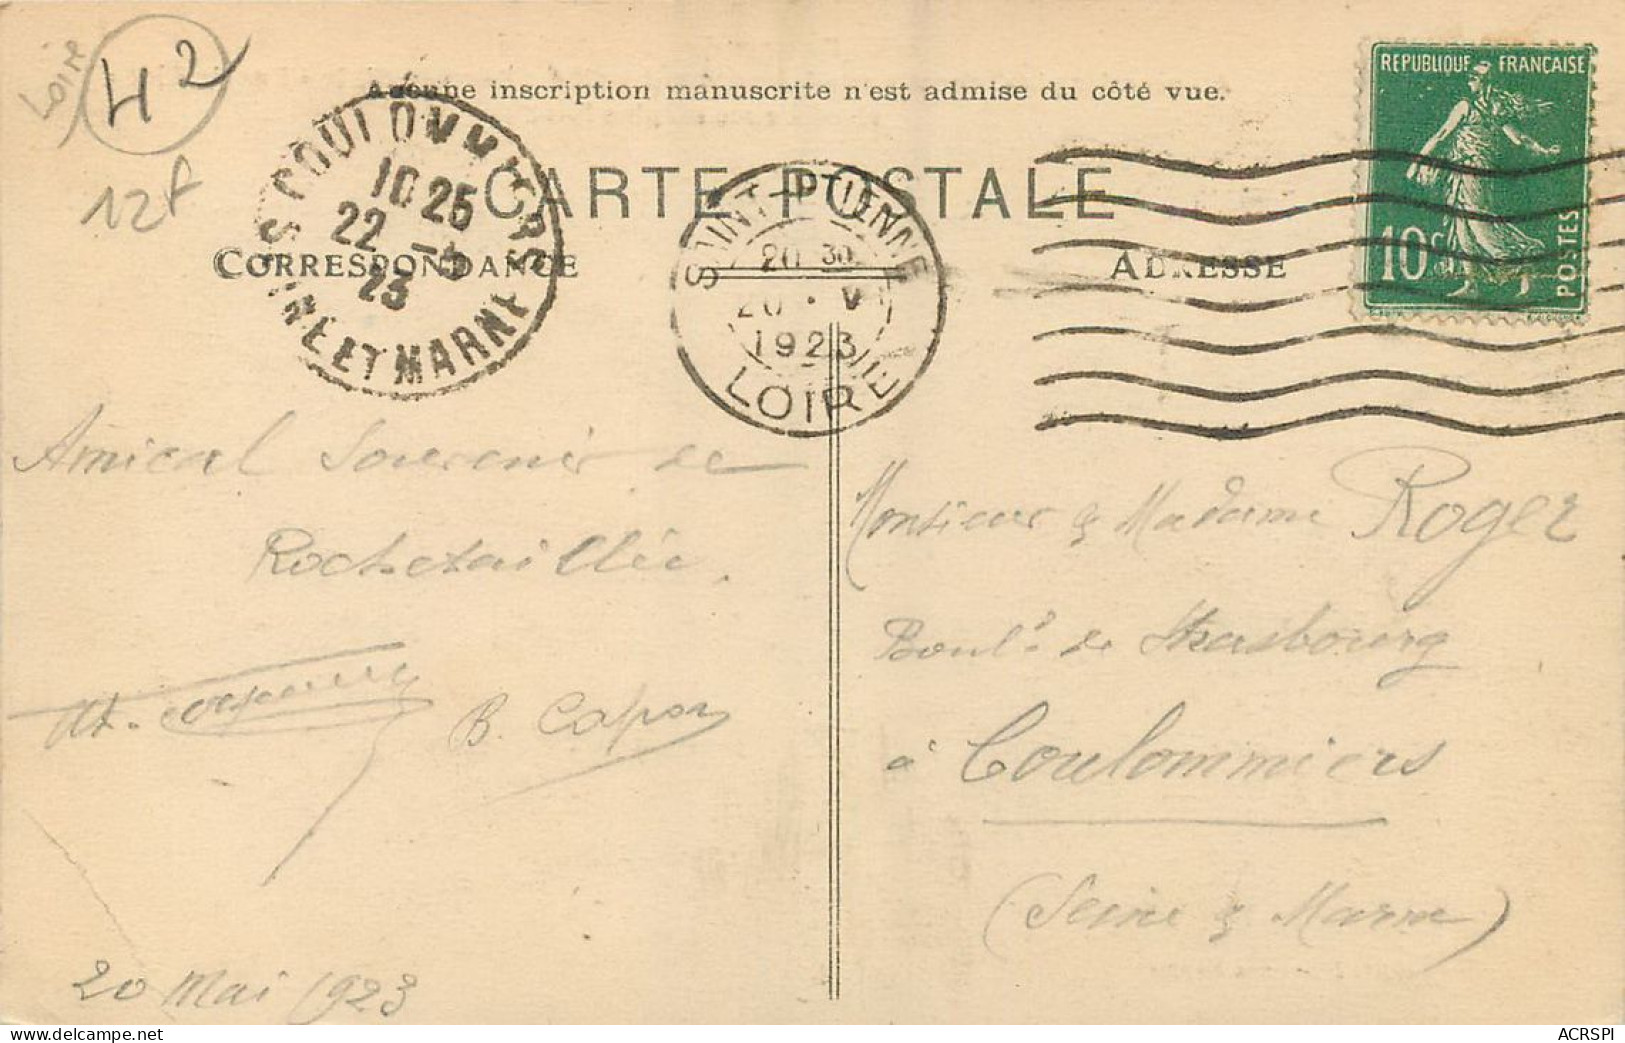 Loire
42
12f
Aucune inscription manuscrite n'est admise du côté vue.
CARTE POSTALE
CORRESPONDANCE
ADRESSE
REPUBLIQUE FRANÇAISE
10c
POSTES
COULOMMIERS
10 25
22 - 5
23
SEINE ET MARNE
SAINT-ETIENNE
20 30
20 • V
1923
LOIRE
Amical Souvenir de
Rochetaillée.
B. Capon
20 Mai 1923
Monsieur & Madame Roger
Boul.d de Strasbourg
à Coulommiers
(Seine & Marne)
www.delcampe.net
ACRSPI